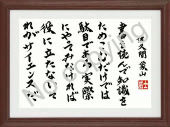 佐久間象山
書を読んで知識を
ためこむだけでは
駄目である。実際
にやってみなければ
役に立たない。
それがサイエンスだ